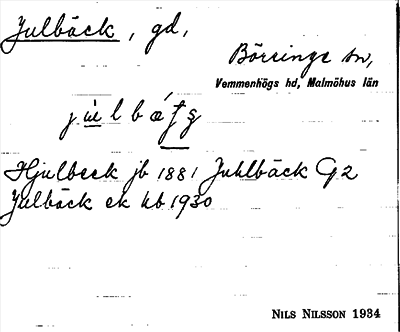 Julbäck, gd,
Börringe sn,
Vemmenhögs hd, Malmöhus län
Hjulbeck jb 1881 Juhlbäck G2
Julbäck ek kb 1930
NILS NILSSON 1934